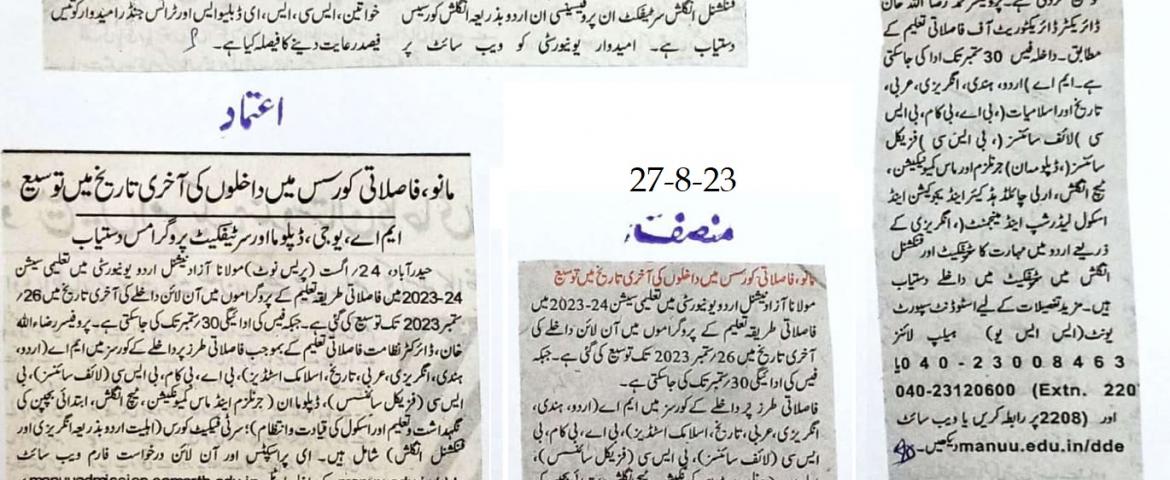 فنکشنل انگلش سرٹیفکٹ ان پروفیسینسی ان اردو بذریعہ انگلش کورسیس
دستیاب ہے۔ امیدوار یونیورٹی کو ویب سائٹ پر
خواتین، ایس سی، ایس، ای ڈبلیو ایس اور ٹرانس جنڈر امیدوار کو تیس
فیصد رعایت دینے کا فیصلہ کیا ہے۔
اعتماد
مانو، فاصلاتی کورسس میں داخلوں کی آخری تاریخ میں توسیع
ایم اے، یو جی، ڈپلوما اور سرٹیفکیٹ پروگرامس دستیاب
حیدرآباد، 24/ اگست (پریس نوٹ) مولانا آزاد نیشنل اردو یونیورٹی میں تعلیمی سیشن
2023-24 میں فاصلاتی طریقہ تعلیم کے پروگراموں میں آن لائن داخلے کی آخری تاریخ میں 26/
ستمبر 2023 تک توسیع کی گئی ہے۔ جبکہ فیس کی ادائیگی 30/ ستمبر تک کی جاسکتی ہے۔ پروفیسر رضاء اللہ
خان، ڈائرکٹر نظامت فاصلاتی تعلیم کے بموجب فاصلاتی طرز پر داخلے کے کورسز میں ایم اے (اردو،
ہندی، انگریزی، عربی، تاریخ، اسلامک اسٹڈیز)، بی اے، بی کام، بی ایس سی (لائف سائنسز)، بی
ایس سی (فزیکل سائنسس)، ڈپلوما ان (جرنلزم اینڈ ماس کمیونکیشن، ٹیچ انگلش، ابتدائی بچپن کی
نگہداشت و تعلیم اور اسکول کی قیادت و انتظام)؛ سرٹی فیکیٹ کورس (اہلیت اردو بذریعہ انگریزی اور
فنکشنل انگلش) شامل ہیں۔ ای پراسپکٹس اور آن لائن درخواست فارم ویب سائٹ
27-8-23
منصف
مانو، فاصلاتی کورسس میں داخلوں کی آخری تاریخ میں توسیع
مولانا آزاد نیشنل اردو یونیورٹی میں تعلیمی سیشن 2023-24 میں
فاصلاتی طریقہ تعلیم کے پروگراموں میں آن لائن داخلے کی
آخری تاریخ میں 26/ ستمبر 2023 تک توسیع کی گئی ہے۔ جبکہ
فیس کی ادائیگی 30/ ستمبر تک کی جاسکتی ہے۔
فاصلاتی طرز پر داخلے کے کورسز میں ایم اے (اردو، ہندی،
انگریزی، عربی، تاریخ، اسلامک اسٹڈیز)، بی اے، بی کام، بی
ایس سی (لائف سائنسز)، بی ایس سی (فزیکل سائنسس)،
ڈائریکٹر ڈائریکٹوریٹ آف فاصلاتی تعلیم کے
مطابق۔ داخلہ فیس 30 ستمبر تک ادا کی جاسکتی
ہے۔ ایم اے (اردو، ہندی، انگریزی، عربی،
تاریخ اور اسلامیات (، بی اے، بی کام، بی ایس
سی )لائف سائنسز (، بی ایس سی )فزیکل
سائنسز (، ڈپلومہ ان) جرنلزم اور ماس کمیونیکیشن،
ٹیچ انگلش، ارلی چائلڈ ہڈ کیئر اینڈ ایجوکیشن اینڈ
اسکول لیڈر شپ اینڈ مینجمنٹ (، انگریزی کے
ذریعے اردو میں مہارت کا سرٹیفکٹ اور فنکشنل
انگلش میں سرٹیفکٹ میں داخلے دستیاب
ہیں۔ مزید تفصیلات کے لیے اسٹوڈنٹ سپورٹ
یونٹ (ایس ایس یو) ہیلپ لائنز
040-23008463 یا
040-23120600 (Extn. 220
اور 2208) پر رابطہ کریں یا ویب سائٹ
manuu.edu.in/dde دیکھیں۔